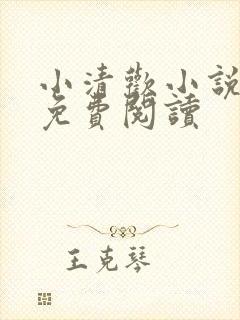 小清歡小說
免費閱讀
王克琴